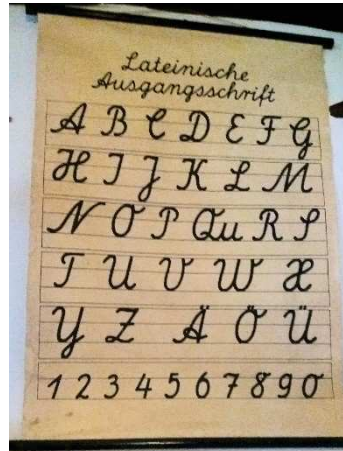 Lateinische
Ausgangsschrift
A B C D E F G
H I J K L M
N O P Qu R S
T U V W X
Y Z Ä Ö Ü
1 2 3 4 5 6 7 8 9 0